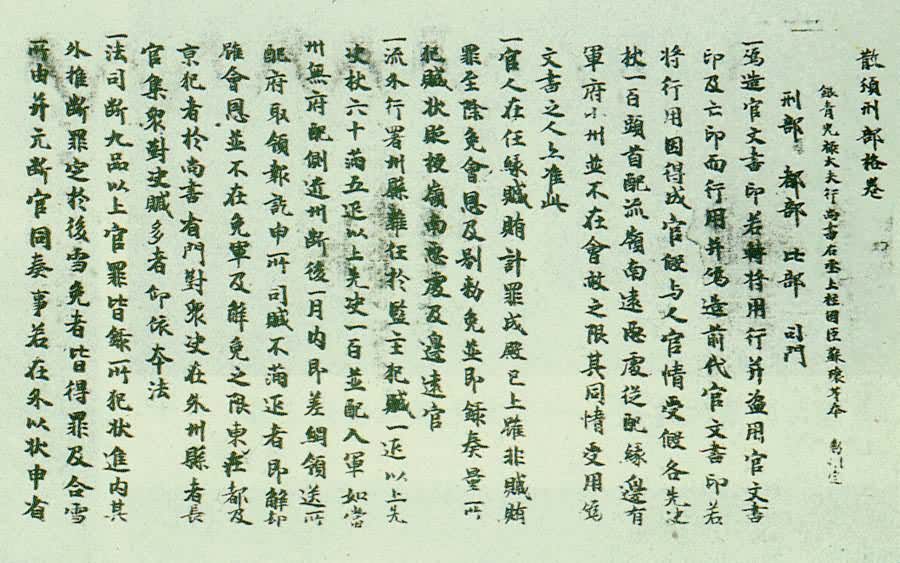 散頒刑部格卷
銀青光祿大夫行尚書右丞上柱國臣蘇瓌等奉 勅刪定
刑部 都部 比部 司門
一偽造官文書印若轉將用行并盜用官文書
印及亡印而行用并偽造前代官文書印若
將行用因得成官假与人官情受假各先決
杖一百頭首配流嶺南遠惡處從配緣邊有
軍府小州並不在會赦之限其同情受用偽
文書之人亦准此
一官人在任緣贓賄計罪成殿已上雖非贓賄
罪至除免會恩及别勅免並即録奏量所
犯贓狀貶授嶺南惡處及邊遠官
一流外行署州縣雜任於監主犯贓一疋以上先
決杖六十滿五疋以上先決一百並配入軍如當
州無府配側近州斷後一月内即差綱領送所
配府取領報訖申所司贓不滿疋者即解却
雖會恩並不在免軍及解免之限東在都及
京犯者於尚書省門對衆決在外州縣者長
官集衆對決贓多者仰依本法
一法司斷九品以上官罪皆録所犯狀進内其
外推斷罪定於後雪免者皆得罪及合雪
所由并元斷官同奏事若在外以狀申者